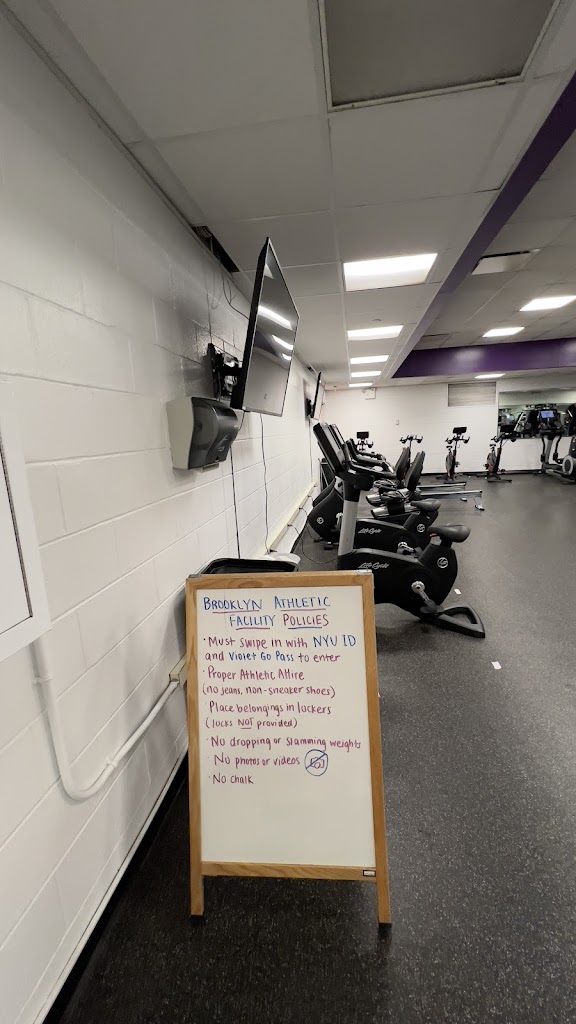 BROOKLYN ATHLETIC
FACILITY POLICIES
· MUST SWIPE IN WITH NYU ID
and Violet Go Pass to enter
· Proper Athletic Attire
(no jeans, non-sneaker shoes)
· Place belongings in lockers
(locks NOT provided)
· No dropping or slamming weights
· No photos or videos
· No chalk
LifeCycle
LifeCycle